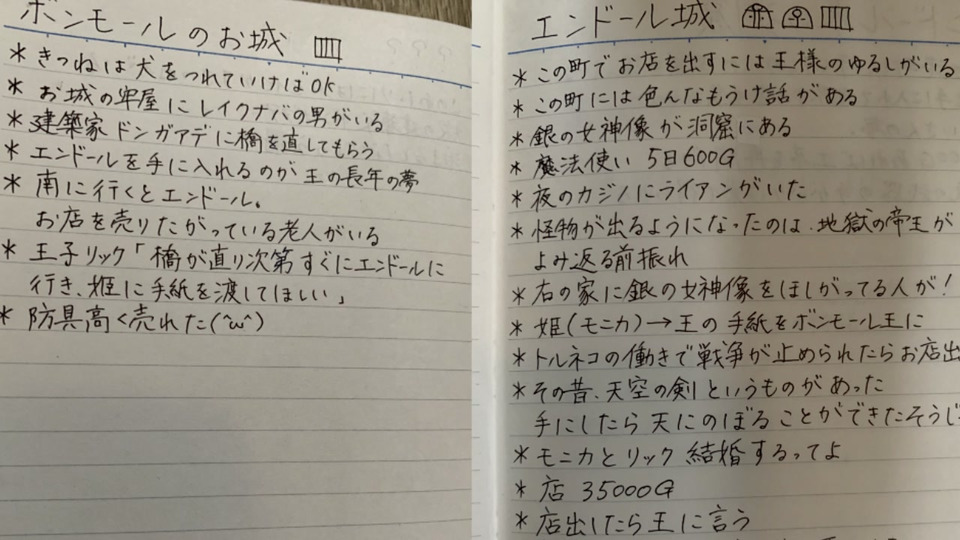 ボンモールのお城
* きつねは犬をつれていけばOK
* お城の牢屋にレイクナバの男がいる
* 建築家 ドンガアデに橋を直してもらう
* エンドールを手に入れるのが王の長年の夢
* 南に行くとエンドール。
お店を売りたがっている老人がいる
* 王子リック「橋が直り次第すぐにエンドールに
行き、姫に手紙を渡してほしい」
* 防具高く売れた(^ω^)
エンドール城
* この町でお店を出すには王様のゆるしがいる
* この町には色んなもうけ話がある
* 銀の女神像が洞窟にある
* 魔法使い 5日600G
* 夜のカジノにライアンがいた
* 怪物が出るようになったのは、地獄の帝王が
よみ返る前振れ
* 右の家に銀の女神像をほしがってる人が!
* 姫(モニカ)→王の手紙をボンモール王に
* トルネコの働きで戦争が止められたらお店出
* その昔、天空の剣というものがあった
手にしたら天にのぼることができたそうじ
* モニカとリック 結婚するってよ
* 店 35000G
* 店出したら王に言う